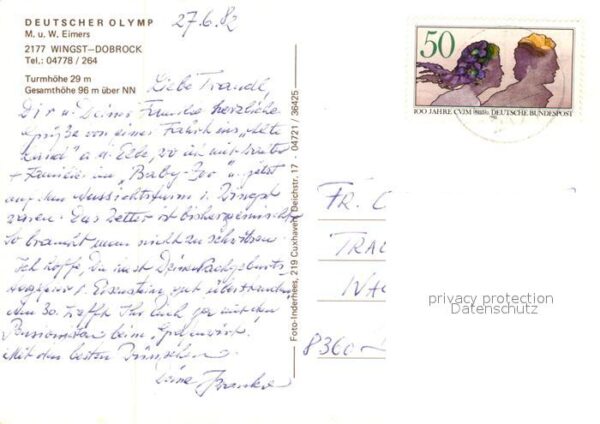 DEUTSCHER OLYMP
M. u. W. Eimers
2177 WINGST-DOBROCK
Tel.: 04778 / 264
Turmhöhe 29 m
Gesamthöhe 96 m über NN
27.6.82
Liebe Traudl,
Dir u. Deiner Familie herzliche
Grüße von einer Fahrt ins "Alte
Land" a. d. Elbe, wo ich mit
- Familie im "Baby-Zoo" u. jetzt
auf dem Aussichtsturm i. Wingst
waren. Das Wetter ist bisher
so braucht man nicht zu schwitzen.
Ich hoffe, Du hast Deine Nachgeburts-
i. Eisenstein gut überstanden.
Am 30. trefft Ihr Euch ja mit den
Pensionisten beim
Mit den besten Wünschen
Deine
Foto-Inderhees, 219 Cuxhaven, Deichstr. 17 - 04721 / 36425
50
100 JAHRE CVJM DEUTSCHE BUNDESPOST
FR. C
TRAU
8360
privacy protection
Datenschutz